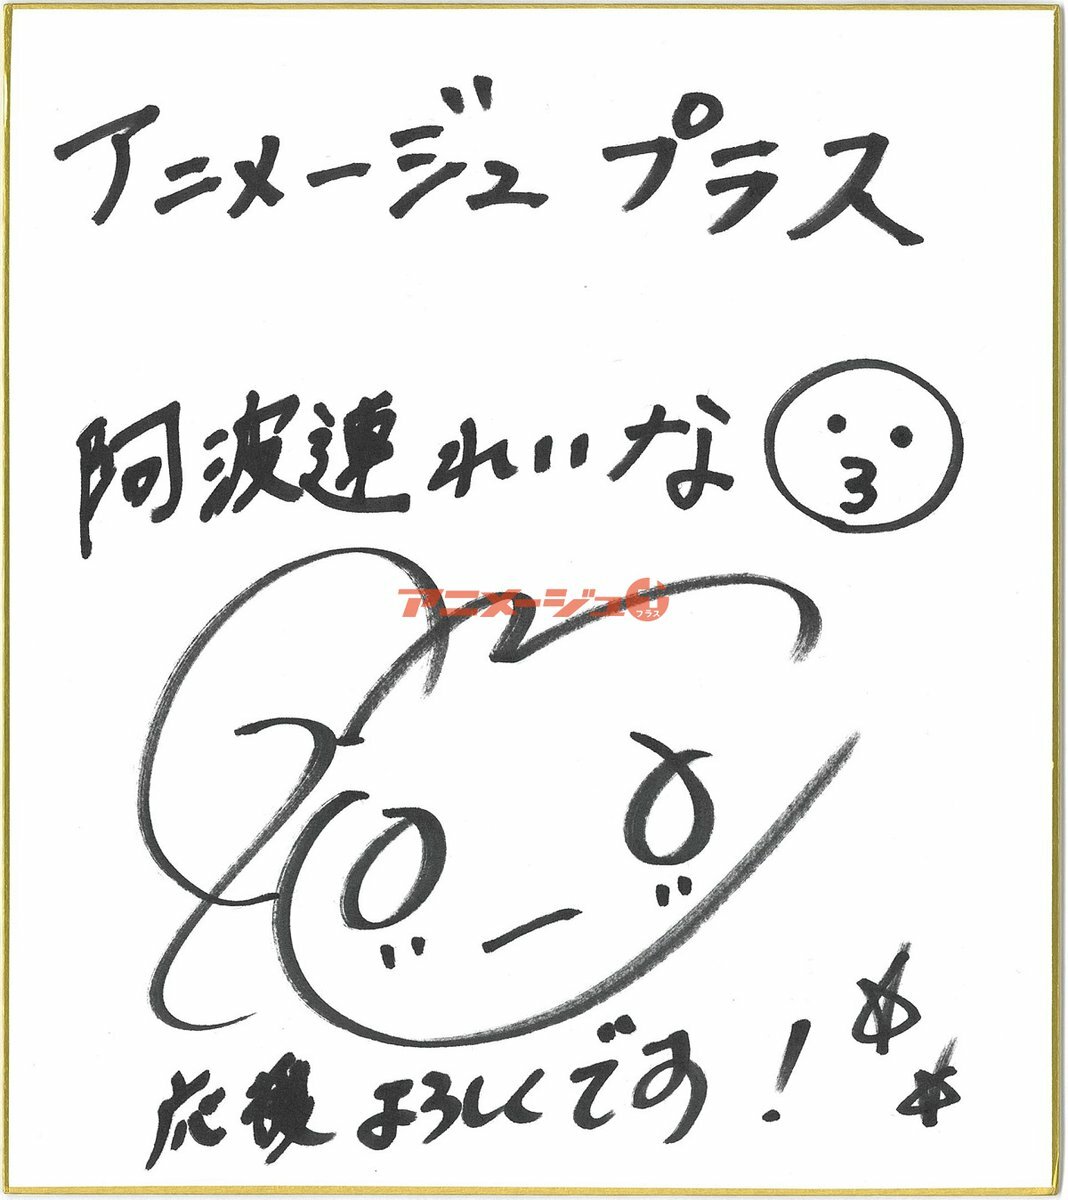 アニメージュ プラス
阿波連れいな
アニメージュ＋
プラス
応援よろしくです！